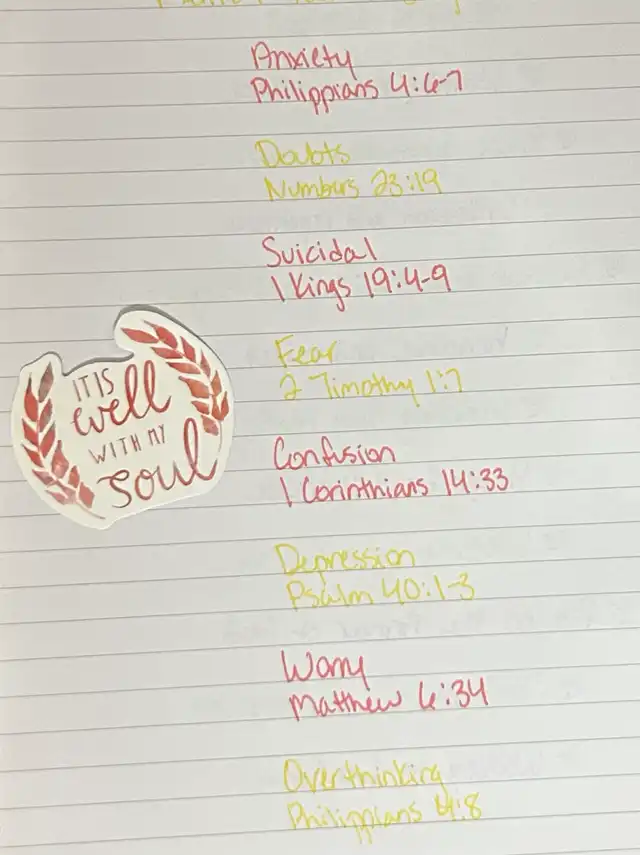 Anxiety
Philippians 4:6-7
Doubts
Numbers 23:19
Suicidal
1 Kings 19:4-9
Fear
2 Timothy 1:7
IT IS
well
WITH MY
soul
Confusion
1 Corinthians 14:33
Depression
Psalm 40:1-3
Worry
Matthew 6:34
Overthinking
Philippians 4:8